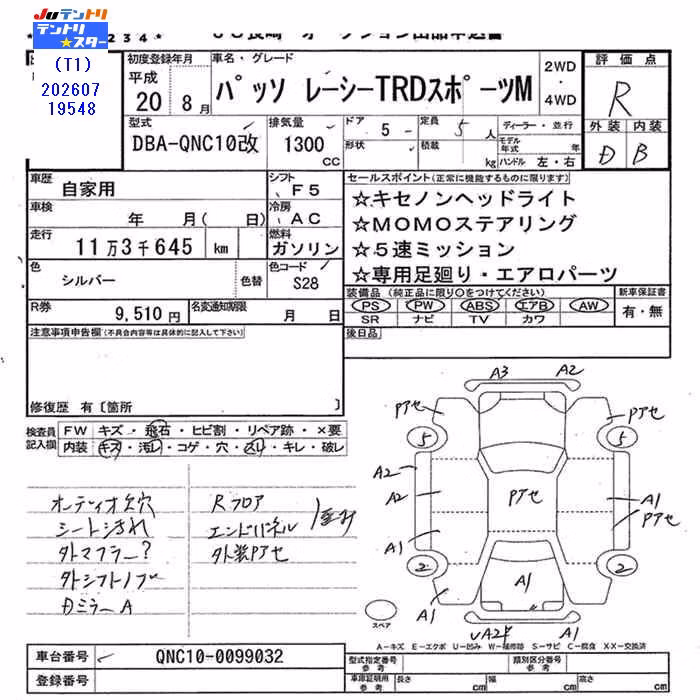 JUテントリ
テントリ★スター
(T1)
202607
19548
初度登録年月
平成
20 8月
車名・グレード
パッソ レーシーTRDスポーツM
2WD
・
4WD
評価点
R
外装 内装
D B
型式
DBA-QNC10改
排気量
1300
CC
ドア 5
形状
定員 5人
積載 kg
ディーラー・並行
モデル年式 年
ハンドル 左・右
車歴
自家用
シフト
F5
車検
年 月( 日)
冷房
AC
走行
11万3千645 km
燃料
ガソリン
色
シルバー
色替
色コード
S28
R券
9,510円
名変通知期限
月 日
セールスポイント(正常に機能するものに限ります)
☆キセノンヘッドライト
☆MOMOステアリング
☆5速ミッション
☆専用足廻り・エアロパーツ
装備品(純正品に限り○をつけてください)
PS PW ABS エアB AW
SR ナビ TV カワ
新車保証書
有・無
注意事項申告欄(不具合内容等は具体的に記入して下さい)
後日品
修復歴 有〔箇所 〕
検査員記入欄
FW キズ・飛石・ヒビ割・リペア跡・×要
内装 キズ・汚レ・コゲ・穴・スリ・キレ・破レ
オーディオ欠穴
シートシミきれ
外マフラー?
外シフトノブ
Dミラー A
Rフロア
エンドパネル
外装Pアセ
A3 A2
Pアセ Pアセ
5 5
A2
A2 Pアセ A1
Pアセ
A1
2 2
A1
A1
A1
スペア
A-キズ E-エクボ U-凹み W-補修跡 S-サビ C-腐食 X・XX-交換済
車台番号 QNC10-0099032
登録番号
型式指定番号 参考
類別区分番号 参考
車庫証明用 参考 長さ cm 幅 cm 高さ cm